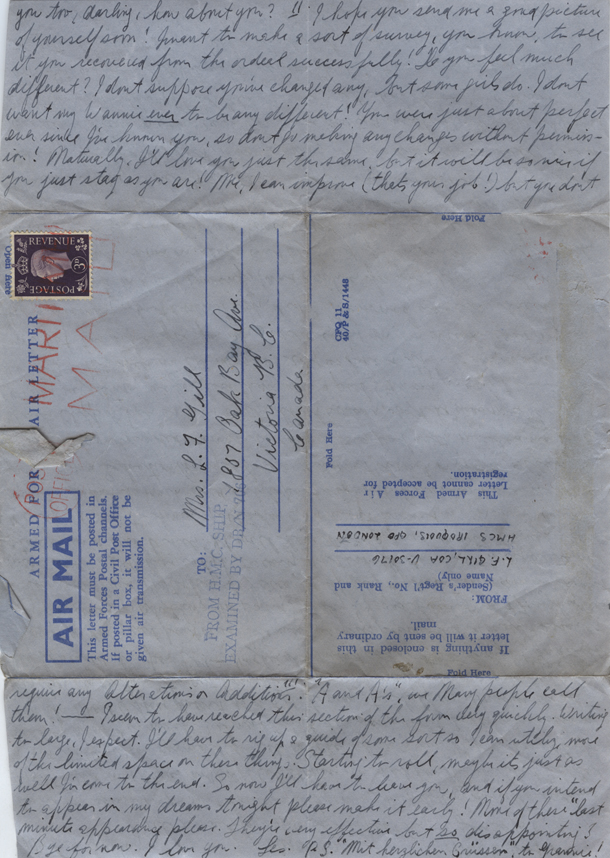 you too, darling, how about you? !! I hope you send me a good picture
of yourself soon! I want to make a sort of survey, you know, to see
if you recovered from the ordeal successfully! Do you feel much
different? I don't suppose you've changed any, but some girls do. I don't
want my Wannie ever to be any different! You were just about perfect
ever since I've known you, so don't go making any changes without permiss-
ion! Naturally, I'll love you just the same, but it will be so nice if
you just stay as you are! Me, I can improve (that's your job!) but you don't
Open Here
REVENUE
POSTAGE
3D
ARMED FORCES AIR LETTER
MARITIME
MAIL
AIR MAIL
This letter must be posted in
Armed Forces Postal channels.
If posted in a Civil Post Office
or pillar box, it will not be
given air transmission.
TO:
Mrs. L. F. Gill
1837 Oak Bay Ave.
Victoria B.C.
Canada
FROM H.M.C. SHIP
EXAMINED BY
Fold Here
CFQ 11
40/P & S/1448
Fold Here
This Armed Forces Air
Letter cannot be accepted for
registration.
HMCS IROQUOIS, GPO LONDON
L.F. GILL, CDA V-50176
(Sender's Reg'l No., Rank and
Name only)
FROM:
If anything is enclosed in this
letter it will be sent by ordinary
mail.
Fold Here
require any Alterations or Additions! "A and A's", we Navy people call
them! — I seem to have reached this section of the form very quickly. Writing
too large, I expect. I'll have to rig up a guide of some sort so I can utilize more
of the limited space on these things. Starting to roll, maybe it's just as
well I'm come to the end. So now I'll have to leave you, and if you intend
to appear in my dreams tonight please make it early! None of these "last
minute appearances please. They're very effective but so disappointing!
Bye for now. I love you. Les. P.S. "Mit herzlichen Grüssen" to Grannie!